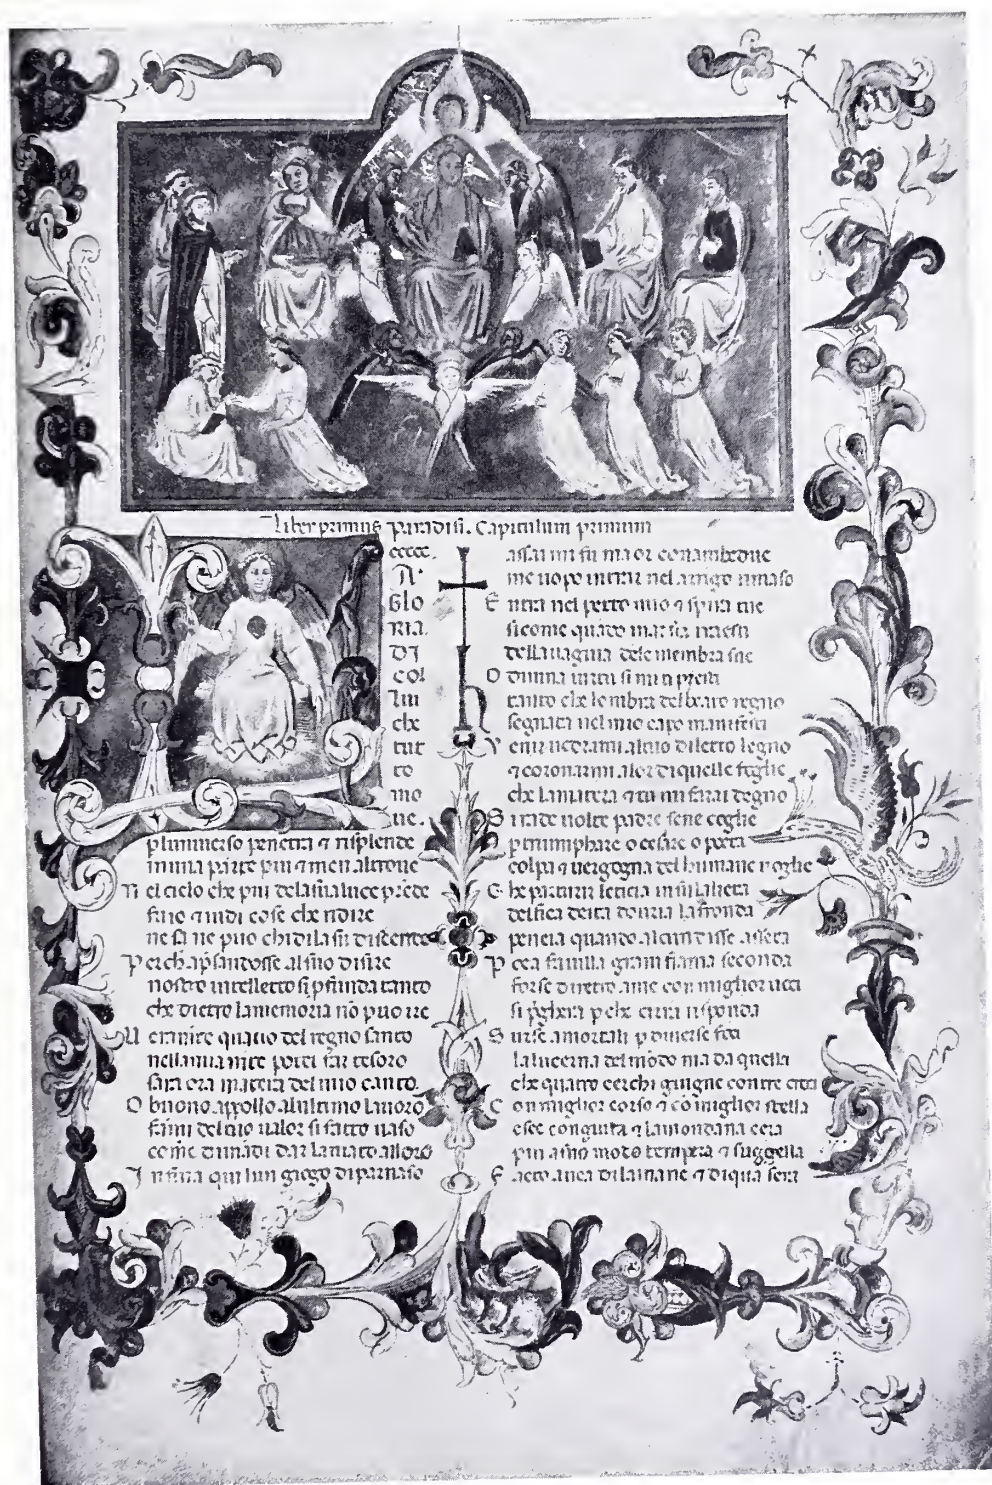 Liber primus Paradisi. Capitulum primum
A
GLO
RIA.
DI
COL
lui
che
tut
to
mo
ue.
p luniuerso penetra ⁊ risplende
in una parte piu ⁊ men altroue
N el ciel che piu dela sua luce prede
fuio ⁊ uidi cose che ridire
ne sa ne puo chi di la su discende
P erch apsandosse al suo disire
nostro intelletto si pfunda tanto
che dietro la memoria nō puo ire
U eramte quatio del regno santo
nella mia mte potei far tesoro
sara ora materia del mio canto.
O buono appollo alultimo lauoro
fammi del tuo ualor si fatto uaso
come dimādi dar lamato alloro
I nfina qui lun giogo di parnaso
assai mi fu ma or con ambedue
me uopo intrar nel aringo rimaso
E ntra nel petto mio ⁊ spira tue
si come quādo marsia traesti
della uagina dele membra sue
O diuina uirtu si mi ti presti
tanto che lombra del beato regno
segnata nel mio capo manifesti
V enir uedrami al tuo diletto legno
⁊ coronarmi alor di quelle foglie
che la matera ⁊ tu mi farai degno
S i rade uolte padre sene coglie
p triumphare o cesare o poeta
colpa ⁊ uergogna del humane uoglie
C he parturir leticia in su la lieta
delfica deita douria la fronda
peneia quando alcun disse asseta
P oca fauilla gram fiama seconda
forse diretro ame con miglior uoci
si pgherra p che cirra risponda
S urge amortali p diuerse foci
la lucerna del mōdo ma da quella
che quatro cerchi giugne con tre croci
C on miglior corso ⁊ cō miglior stella
esce congiuta ⁊ la mondana cera
piu asuo modo tempera ⁊ suggella
F acto auea di la mane ⁊ di qua sera